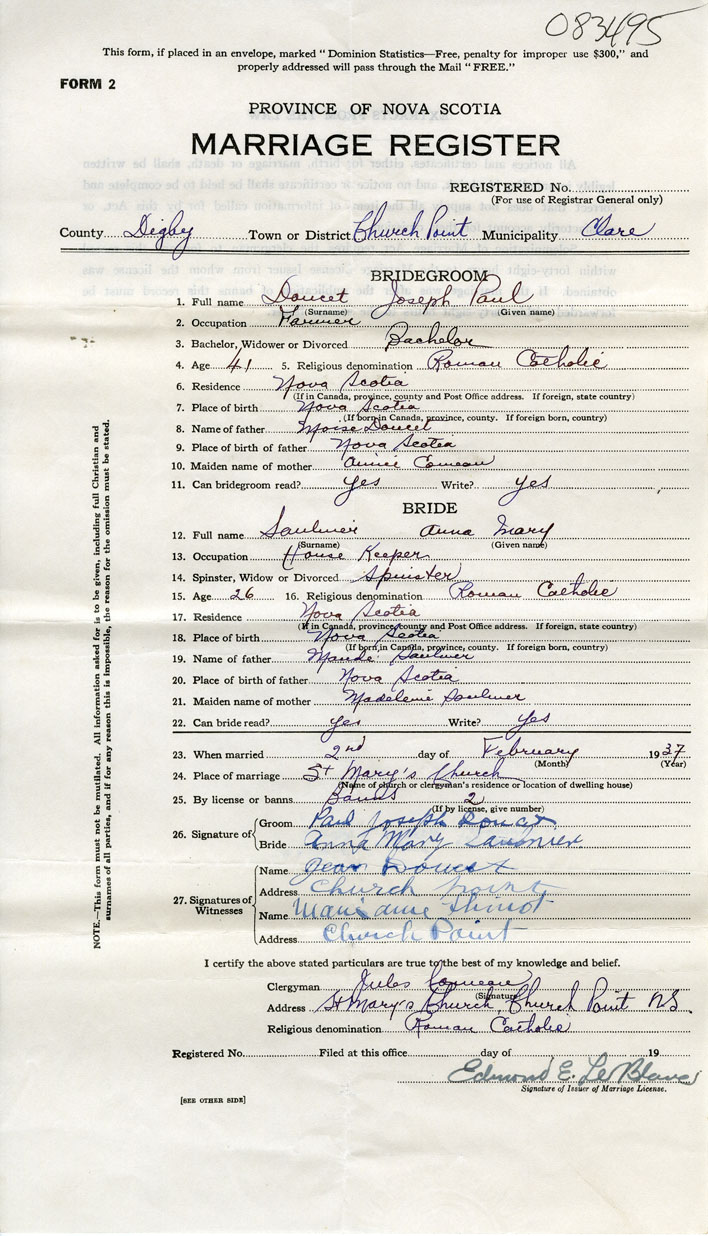 083495
This form, if placed in an envelope, marked "Dominion Statistics—Free, penalty for improper use $300," and
properly addressed will pass through the Mail "FREE."
FORM 2
PROVINCE OF NOVA SCOTIA
MARRIAGE REGISTER
REGISTERED No.
(For use of Registrar General only)
County Digby Town or District Church Point Municipality Clare
BRIDEGROOM
1. Full name Doucet Joseph Paul
(Surname) (Given name)
2. Occupation Farmer
3. Bachelor, Widower or Divorced Bachelor
4. Age 41 5. Religious denomination Roman Catholic
6. Residence Nova Scotia
(If in Canada, province, county and Post Office address. If foreign, state country)
7. Place of birth Nova Scotia
(If born in Canada, province, county. If foreign born, country)
8. Name of father Moise Doucet
9. Place of birth of father Nova Scotia
10. Maiden name of mother Comeau
11. Can bridegroom read? yes Write? yes
BRIDE
12. Full name Saulnier Anna Mary
(Surname) (Given name)
13. Occupation House Keeper
14. Spinster, Widow or Divorced Spinster
15. Age 26 16. Religious denomination Roman Catholic
17. Residence Nova Scotia
(If in Canada, province, county and Post Office address. If foreign, state country)
18. Place of birth Nova Scotia
(If born in Canada, province, county. If foreign born, country)
19. Name of father Mandé Saulnier
20. Place of birth of father Nova Scotia
21. Maiden name of mother Madeleine Saulnier
22. Can bride read? yes Write? yes
23. When married 2nd day of February 1937
(Month) (Year)
24. Place of marriage St Mary's Church
(Name of church or clergyman's residence or location of dwelling house)
25. By license or banns Banns 2
(If by license, give number)
26. Signature of Groom Paul Joseph Doucet
Bride Anna Mary Saulnier
27. Signatures of Witnesses Name Jean Doucet
Address Church Point
Name Marianne Thinot
Address Church Point
I certify the above stated particulars are true to the best of my knowledge and belief.
Clergyman Jules Comeau
(Signature)
Address St Mary's Church, Church Point N.S.
Religious denomination Roman Catholic
Registered No. Filed at this office day of 19
Edmond E. Le Blanc
Signature of Issuer of Marriage License.
[SEE OTHER SIDE]
NOTE.—This form must not be mutilated. All information asked for is to be given, including full Christian and
surnames of all parties, and if for any reason this is impossible, the reason for the omission must be stated.